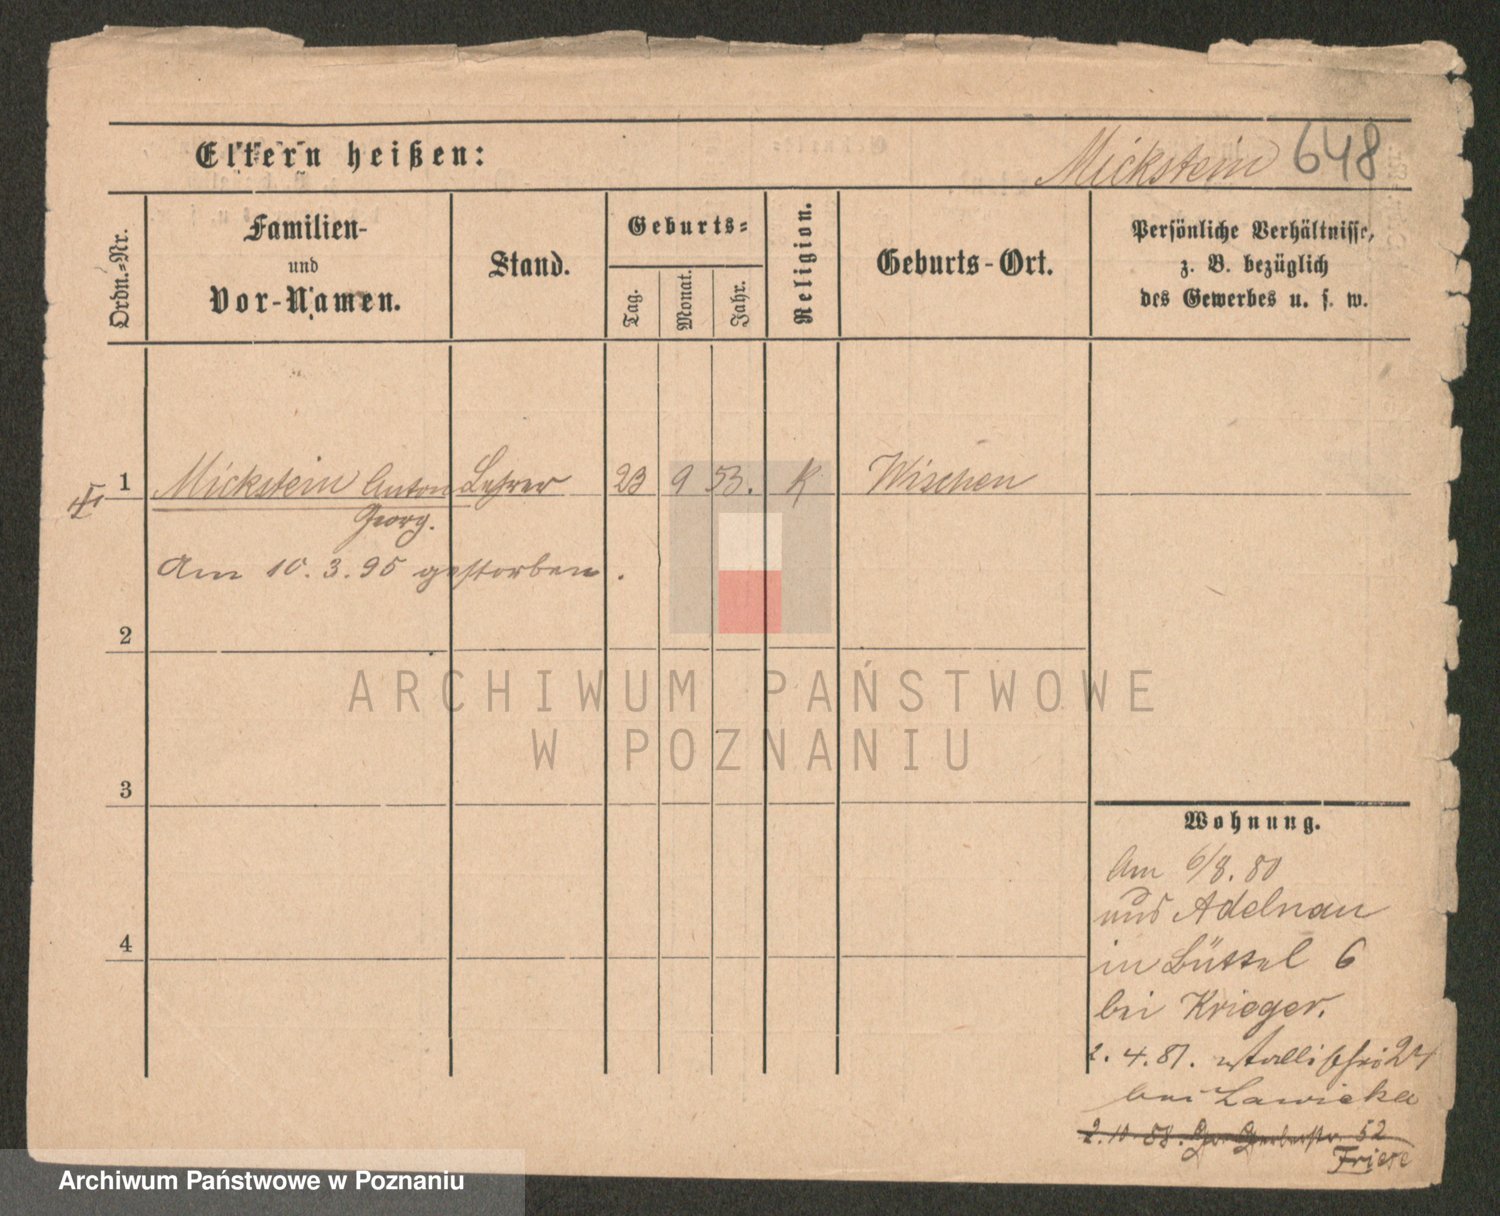 Eltern heißen:
Mickstein 648
Ordn.-Nr.
Familien-
und
Vor-Namen.
Stand.
Geburts-
Tag.
Monat.
Jahr.
Religion.
Geburts-Ort.
Persönliche Verhältnisse,
z. B. bezüglich
des Gewerbes u. s. w.
1 Mickstein Anton Lehrer 23 9 53. K Wischen
Georg.
Am 10.3.95 gestorben.
2
3
4
Wohnung.
Am 6/8. 80
aus Adelnau
in Büttel 6
bei Krieger.
2.4.81. 24
bei Lawicka
2.10. 52
Friese
ARCHIWUM PAŃSTWOWE
W POZNANIU
Archiwum Państwowe w Poznaniu